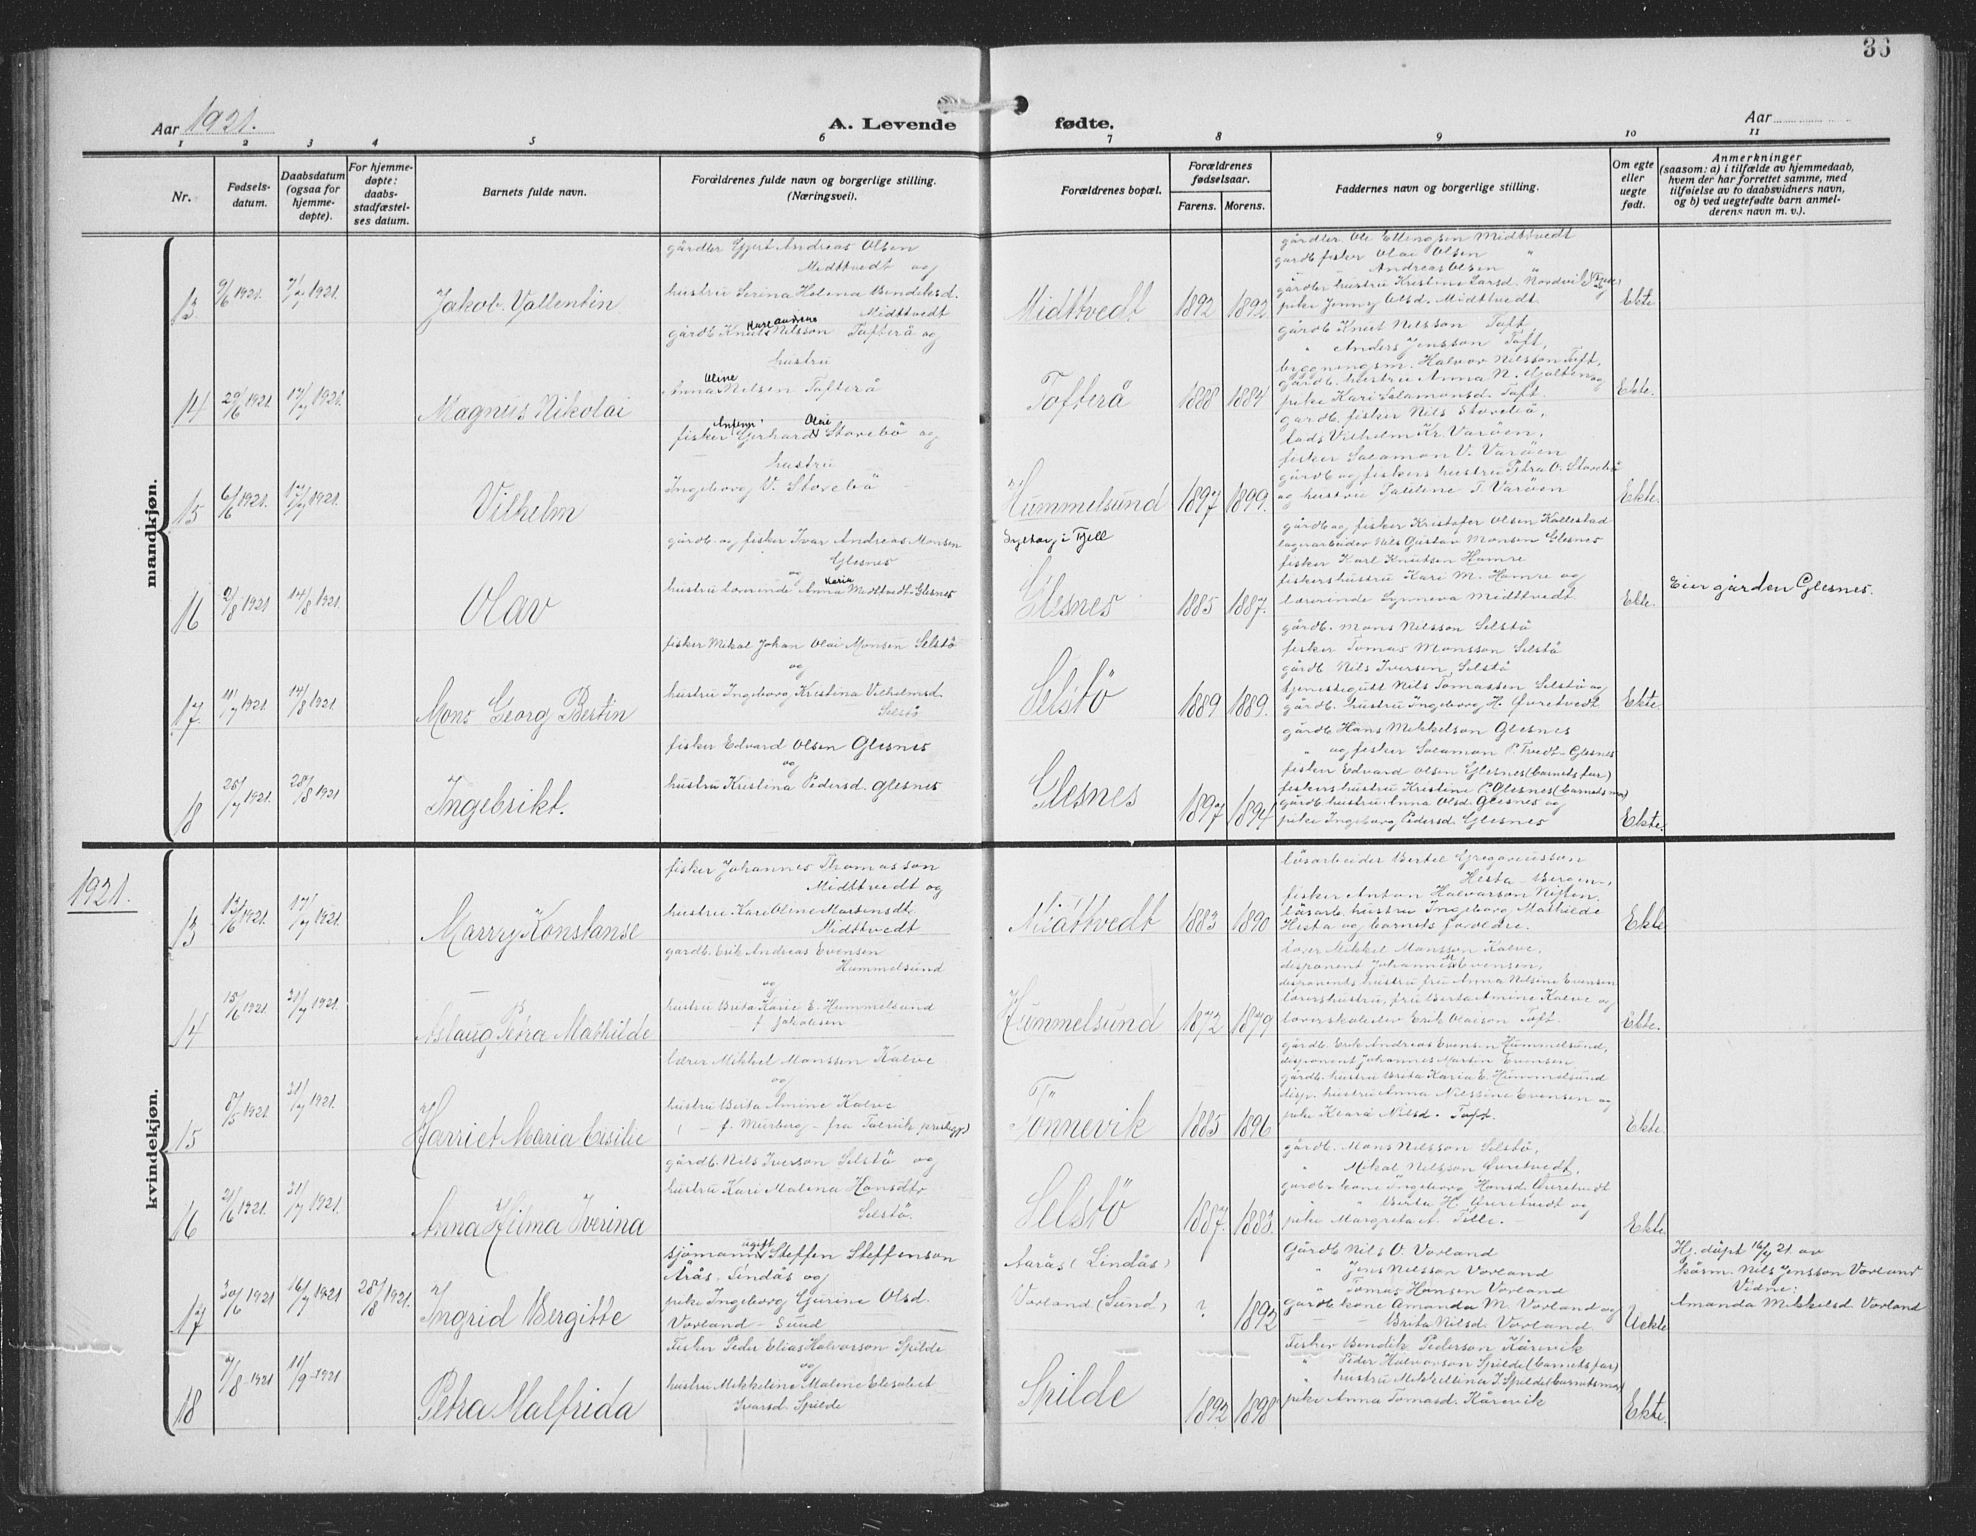 36
Aar 1921.
A. Levende fødte.
Aar
1 2 3 4 5 6 7 8 9 10 11
Nr.
Fødsels-
datum.
Daabsdatum
(ogsaa for
hjemme-
døpte).
For hjemme-
døpte:
daabs-
stadfæstel-
ses datum.
Barnets fulde navn.
Forældrenes fulde navn og borgerlige stilling.
(Næringsvei).
Forældrenes bopæl.
Forældrenes
fødselsaar.
Farens. Morens.
Faddernes navn og borgerlige stilling.
Om egte
eller
uegte
født.
Anmerkninger
(saasom: a) i tilfælde av hjemmedaab,
hvem der har forrettet samme, med
tilføielse av to daabsvidners navn,
og b) ved uegtefødte barn anmel-
derens navn m. v.).
mandkjøn.
13 9/6 1921. 7/7 1921. Jakob Vallentin
gårdbr Gjert Andreas Olsen
Midttvedt og
hustru Serina Helena Bendiksd.
Midttvedt
Midttvedt 1892 1892
gårdbr. Ole Ellingsen Midttvedt
gårdb fisker Olai Olsen "
" Andreas Olsen "
gårdbr hustru Kristine Larsd. Nordvik
pike Jenny Olsd. Midttvedt.
Ekte
14 29/6 1921. 17/7 1921. Magnus Nikolai
gårdb. Knut Nilsson Tofterå og
hustru
Anna Oline Nilsen Tofterå
Tofterå 1888 1884
gårdb. Knut Nilsson Toft,
" Anders Jensson Toft,
byggningsm. Halvor Nilsson Toft,
gårdb. hustru Anna N. Gjelten og
pike Kari Salamonsd. Toft.
Ekte.
15 6/6 1921. 17/7 1921. Vilhelm
fisker Gerhard Olai Storebö og
hustru
Ingeborg V. Storebö
Hummelsund 1897 1899.
gårdb. fisker Nils Storebö,
Lods Vilhelm Kr. Varöen,
fisker Salamon V. Varöen
gårdb og fiskers hustru Petra O. Storebö
og hustru Pauline T. Varöen
Ekte.
16 2/8 1921 14/8 1921. Olav
gårdb. og fisker Ivar Andreas Monsen
Glesnes
og
hustru lærerinde Anna Karia Midttvedt-Glesnes
Glesnes 1885 1887.
gårdb og fisker Kristofer Olsen Kallestad
lagerarbeider Nils Gustav Monsen Glesnes
fisker Karl Knutsen Hamre
fiskershustru Kari M. Hamre og
lærerinde Synneva Midttvedt.
Ekte.
Eier gården Glesnes.
17. 11/7 1921. 14/8 1921. Mons Georg Bertin
fisker Mikal Johan Olai Monsen Selstö
og
hustru Ingeborg Kristina Vilhelmsd.
Selstö
Selstö 1889 1889.
gårdb. Mons Nilsson Selstö
fisker Tomas Monsson Selstö
gårdb Nils Iversen, Selstö
tjenestegutt Nils Tomassen Selstö og
gårdb. hustru Ingeborg H. Øvretvedt
Ekte.
18 25/7 1921. 28/8 1921 Ingebrikt.
fisker Edvard Olsen Glesnes
og
hustru Kristina Pedersd. Glesnes
Glesnes 1897 1894
gårdb Hans Mikkelson Glesnes
" og fisker Salamon P. Tvedt-Glesnes
fisker Edvard Olsen Glesnes (barnets far)
fiskers hustru Kristine P. Glesnes (barnets mor)
gårdb hustru Anna Olsd. Glesnes og
pike Ingeborg Pedersd. Glesnes
Ekte.
1921.
kvindekjøn.
13 13/6 1921. 17/7 1921. Marrry Konstanse
fisker Johannes Thomasson
Midttvedt og
hustru Kari Oline Martensdt.
Midttvedt
Midttvedt 1883 1890
løsarbeider Bertel Gregoriusson
Hesta Bergen,
fisker Anton Halvorson Viften,
løsarb. hustru Ingeborg Mathilde
Hesta og barnets foreldre.
Ekte
14 15/6 1921. 31/7 1921. Aslaug Petra Mathilde
gardb. Erik Andreas Evensen
Hummelsund
og
hustru Brita Karie E. Hummelsund
f. Jakobsen
Hummelsund 1872 1879
lærer Mikkel Monsson Kalve,
disponent Johannes M. Evensen,
disponents hustru fru Anna Nilsine Evensen
lærershustru, fru Berta Amine Kalve og
lærerskoleelev Erik Olaison Toft.
Ekte.
15 8/5 1921. 31/7 1921. Harriet Maria Cisilie
lærer Mikkel Monssen Kalve
og
hustru Berta Amine Kalve
f. Murberg - fra Talvik prestegj.
Tönnevik 1885 1896
gårdb. Erik Andreas Evensen Hummelsund,
disponent Johannes Martin Evensen
gårdb. hustru Brita Karia E. Hummelsund
disp. hustru Anna Nilssine Evensen og
pike Klara Nilsd. Toft.
Ekte.
16 21/6 1921. 31/7 1921. Anna Hilma Iverina
gårdb. Nils Iverson Selstö og
hustru Kari Malena Hansdtr
Selstö.
Selstö 1887. 1883.
gårdb. Mons Nilsson Selstö,
" Mikal Nilsson Øvretvedt,
gårdbr kone Ingeborg Hansd. Øvretvedt
" " Berta H. Øvretvedt og
pike Margreta A. Telle.
Ekte
17 30/6 1921 16/7 1921 28/8 1921. Ingrid Bergitte
sjömann ugift Steffen Steffenson
Årås, Lindås og
pike Ingeborg Gurine Olsd.
Vorland - Sund
Aarås (Lindås)
Vorland (Sund) ? 1892
Gårdb Nils O. Vorland
" Jens Nilsson Vorland
" Tomas Hansen Vorland
gårdb kone Amanda M. Vorland og
Brita Nilsd. Vorland.
Uekte
Hj. döpt 16/7 21. av
Nils Jensson Vorland
Vidne:
Amanda Mikkelsd. Vorland
18 7/8-1921 11/9-1921 Petra Malfrida
Fisker Peder Elias Halvorson Spilde
og
hustru Mikkeline Malene Elesabet
Ivarsd. Spilde
Spilde 1892 1898
Fisker Bendik Pederson Kårevik
" Peder Halvorson Spilde (barnets far)
" hustru Mikkellina I. Spilde (barnets mor)
pike Anna Tomasd. Kårevik
Ekte.